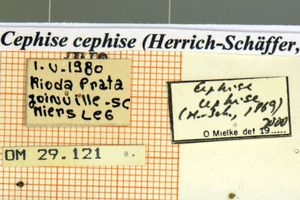 Cephise cephise (Herrich-Schäffer,
1.V.1980
Rio da Prata
Joinville-SC
Miers Leg
Cephise
cephise
(H.-Sch., 1869)
O Mielke det 19.....
2000
OM 29.121